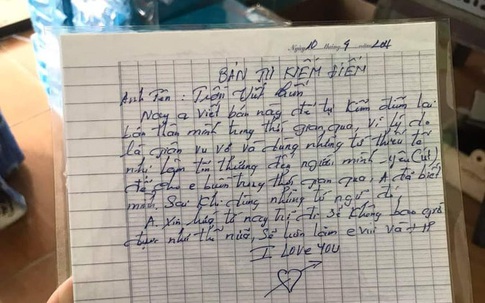 Ngày 10 tháng 9 năm 201
BẢN TỰ KIỂM ĐIỂM
Anh Tên : Trần Viết
Nay a viết bản này để tự kiểm điểm lại
bản thân mình trong thời gian qua, vì lý do
là giận vu vơ và dùng những từ thiếu tế
nhị làm tổn thương đến người mình yêu
để cho e buồn trong thời gian qua, A đã biết
mình Sai khi dùng những từ ngữ đó
A. xin hứa từ nay trở đi Sẽ không bao giờ
được như thế nữa, Sẽ luôn làm e vui và HP
I LOVE YOU